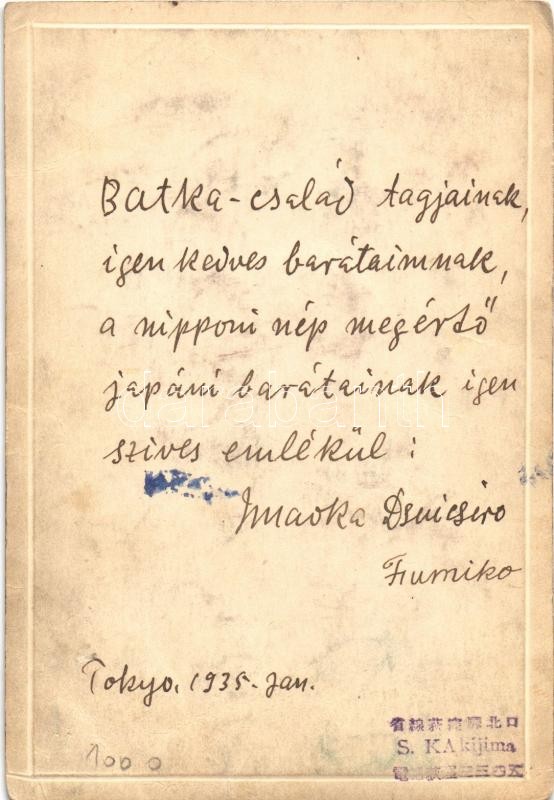 Batka-család tagjainak,
igen kedves barátaimnak,
a nipponi nép megértő
japáni barátainak igen
szives emlékül:
Imaoka Dsuicsiro
Fiumiko
Tokyo. 1935. jan.
省線荻窪駅北口
S. KAkijima
電話荻窪三三四五
1000
darabanth